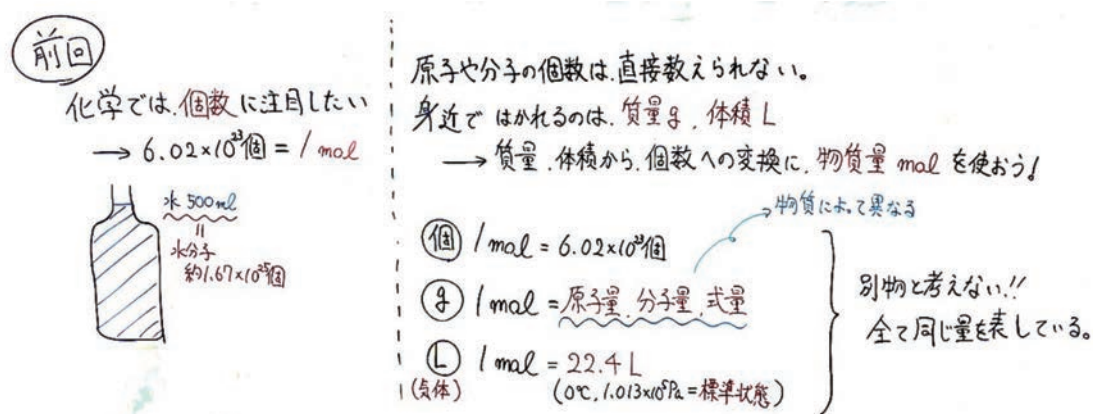 前回
化学では、個数に注目したい
→ 6.02×10²³個 = 1 mol
水 500ml
=
水分子
約1.67×10²⁵個
原子や分子の個数は、直接数えられない。
身近で はかれるのは、質量g、体積 L
→ 質量、体積から、個数への変換に、物質量 mol を使おう!
物質によって異なる
個 1 mol = 6.02×10²³個
g 1 mol = 原子量、分子量、式量
L 1 mol = 22.4 L
(気体) (0℃, 1.013×10⁵Pa = 標準状態)
別物と考えない!!
全て同じ量を表している。